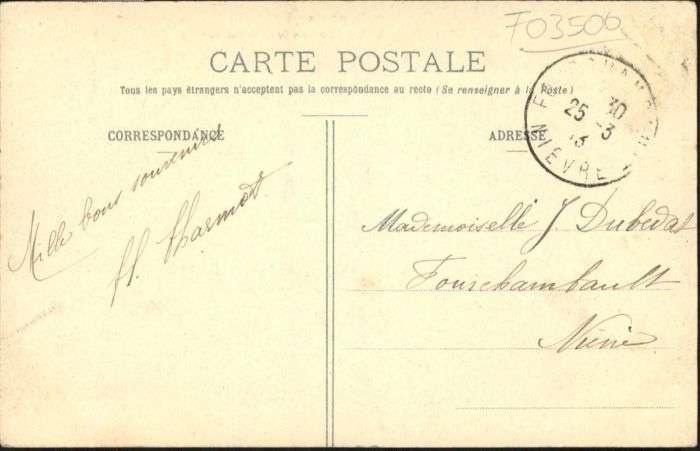 F03506
CARTE POSTALE
Tous les pays étrangers n'acceptent pas la correspondance au recto (Se renseigner à la Poste)
CORRESPONDANCE
ADRESSE
30
25 -3
13
NIEVRE
Mille bons souvenirs
Mademoiselle J. Dubedat
Fourchambault
Nièvre